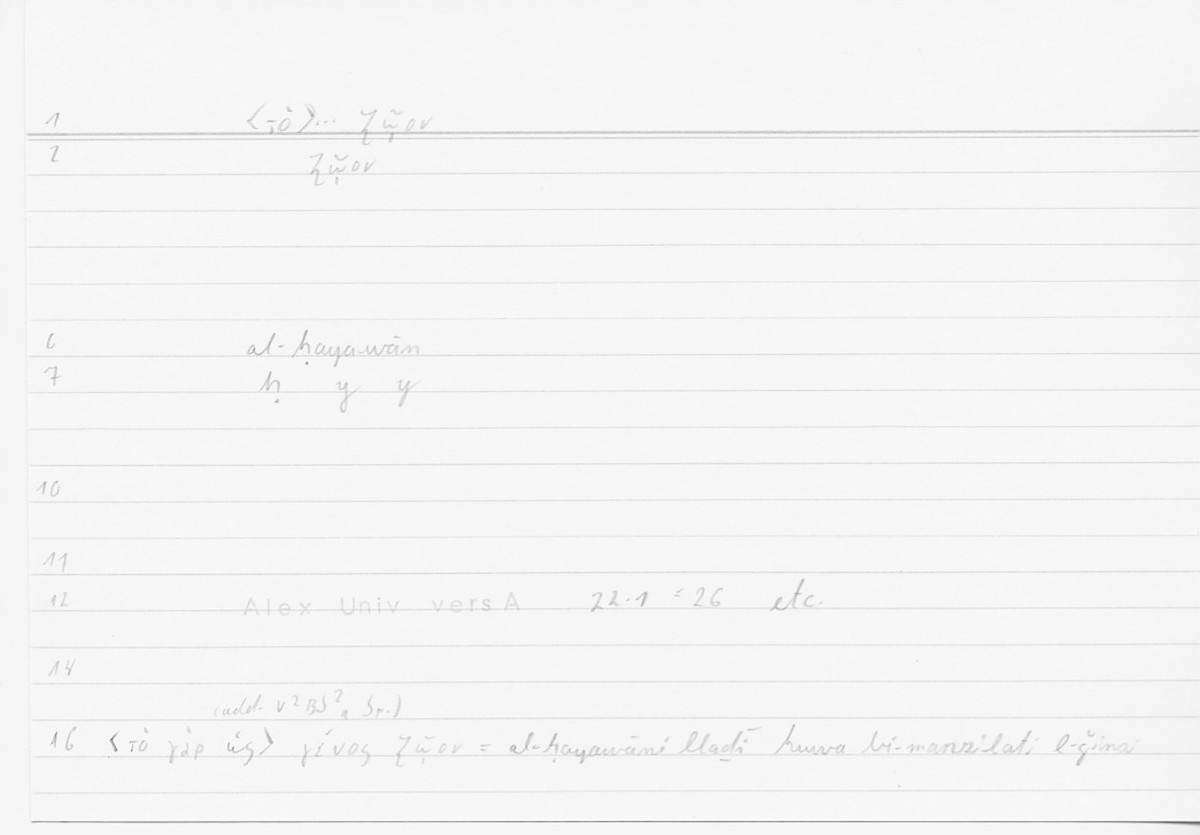 1 〈τὸ〉... ζῷον
2 ζῷον
6 al-ḥayawān
7 ḥ y y
10
11
12 Alex Univ vers A 22.1 = 26 etc.
14
(add. V²BS²a Sp.)
16 〈τὸ γὰρ ὡς〉 γένος ζῷον = al-ḥayawāni llaḏī huwa bi-manzilati l-ǧinsi